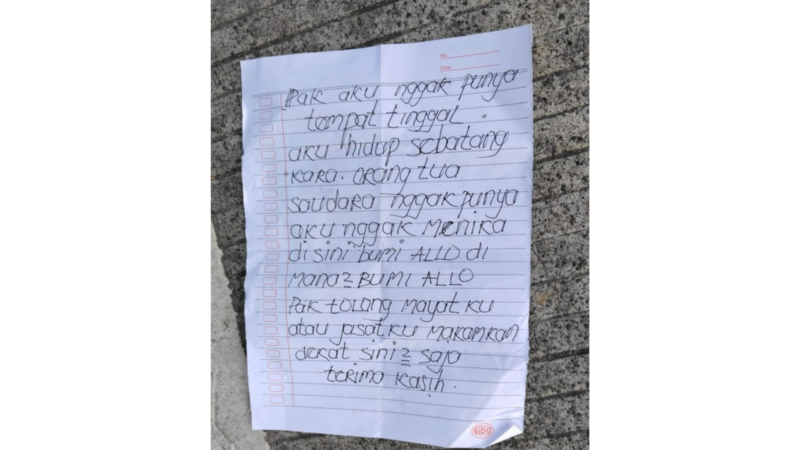 No.
Date:
Pak aku nggak punya
tempat tinggal.
aku hidup sebatang
kara. orang tua
saudara nggak punya
aku nggak Menika
disini bumi ALLO di
Mana2 BUMI ALLO
Pak tolong mayat ku
atau jasatku Makamkan
dekat sini2 saja
terima kasih.
SIDU